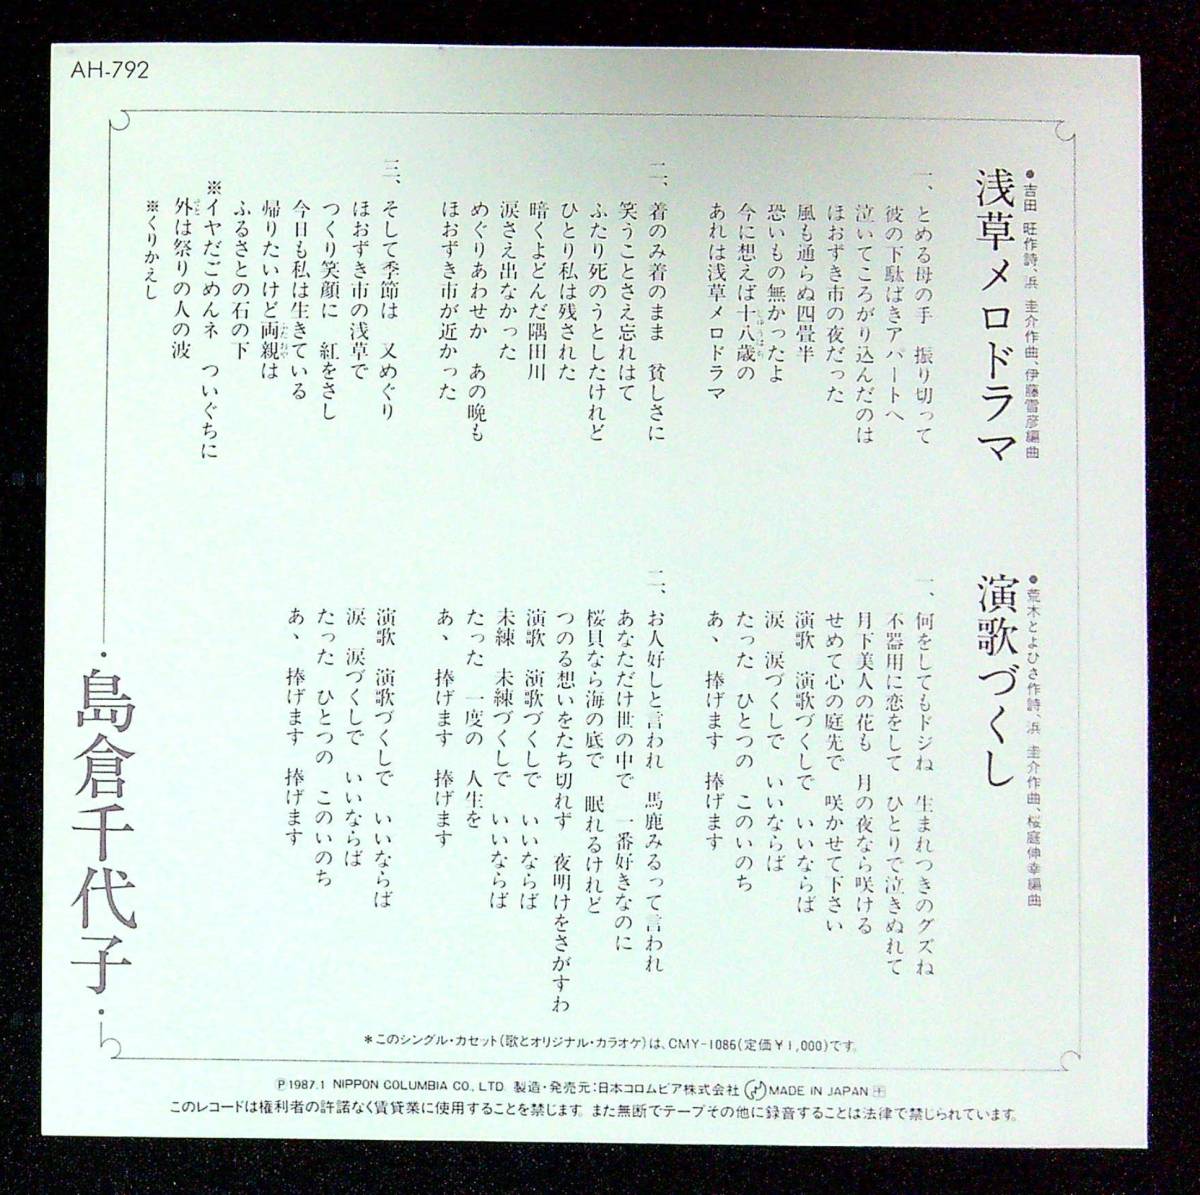 AH-792
●吉田 旺作詩、浜 圭介作曲、伊藤雪彦編曲
浅草メロドラマ
一、とめる母の手 振り切って
彼の下駄ばきアパートへ
泣いてころがり込んだのは
ほおずき市の夜だった
風も通らぬ四畳半
恐いもの無かったよ
今に想えば十八歳の
あれは浅草メロドラマ
二、着のみ着のまま 貧しさに
笑うことさえ忘れはて
ふたり死のうとしたけれど
ひとり私は残された
暗くよどんだ隅田川
涙さえ出なかった
めぐりあわせか あの晩も
ほおずき市が近かった
三、そして季節は 又めぐり
ほおずき市の浅草で
つくり笑顔に 紅をさし
今日も私は生きている
帰りたいけど両親は
ふるさとの石の下
※イヤだごめんネ ついぐちに
外は祭りの人の波
※くりかえし
●荒木とよひさ作詩、浜 圭介作曲、桜庭伸幸編曲
演歌づくし
一、何をしてもドジね 生まれつきのグズね
不器用に恋をして ひとりで泣きぬれて
月下美人の花も 月の夜なら咲ける
せめて心の庭先で 咲かせて下さい
演歌 演歌づくしで いいならば
涙 涙づくしで いいならば
たった ひとつの このいのち
あゝ 捧げます 捧げます
二、お人好しと言われ 馬鹿みるって言われ
あなただけ世の中で 一番好きなのに
桜貝なら海の底で 眠れるけれど
つのる想いをたち切れず 夜明けをさがすわ
演歌 演歌づくしで いいならば
未練 未練づくしで いいならば
たった 一度の 人生を
あゝ 捧げます 捧げます
演歌 演歌づくしで いいならば
涙 涙づくしで いいならば
たった ひとつの このいのち
あゝ 捧げます 捧げます
・島倉千代子・
＊このシングル・カセット(歌とオリジナル・カラオケ)は、CMY-1086(定価￥1,000)です。
Ⓟ1987.1 NIPPON COLUMBIA CO., LTD. 製造・発売元:日本コロムビア株式会社 MADE IN JAPAN
このレコードは権利者の許諾なく賃貸業に使用することを禁じます。また無断でテープその他に録音することは法律で禁じられています。